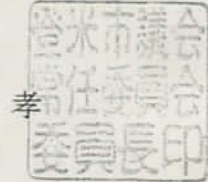 孝
登米市議会
常任委員会
委員長印